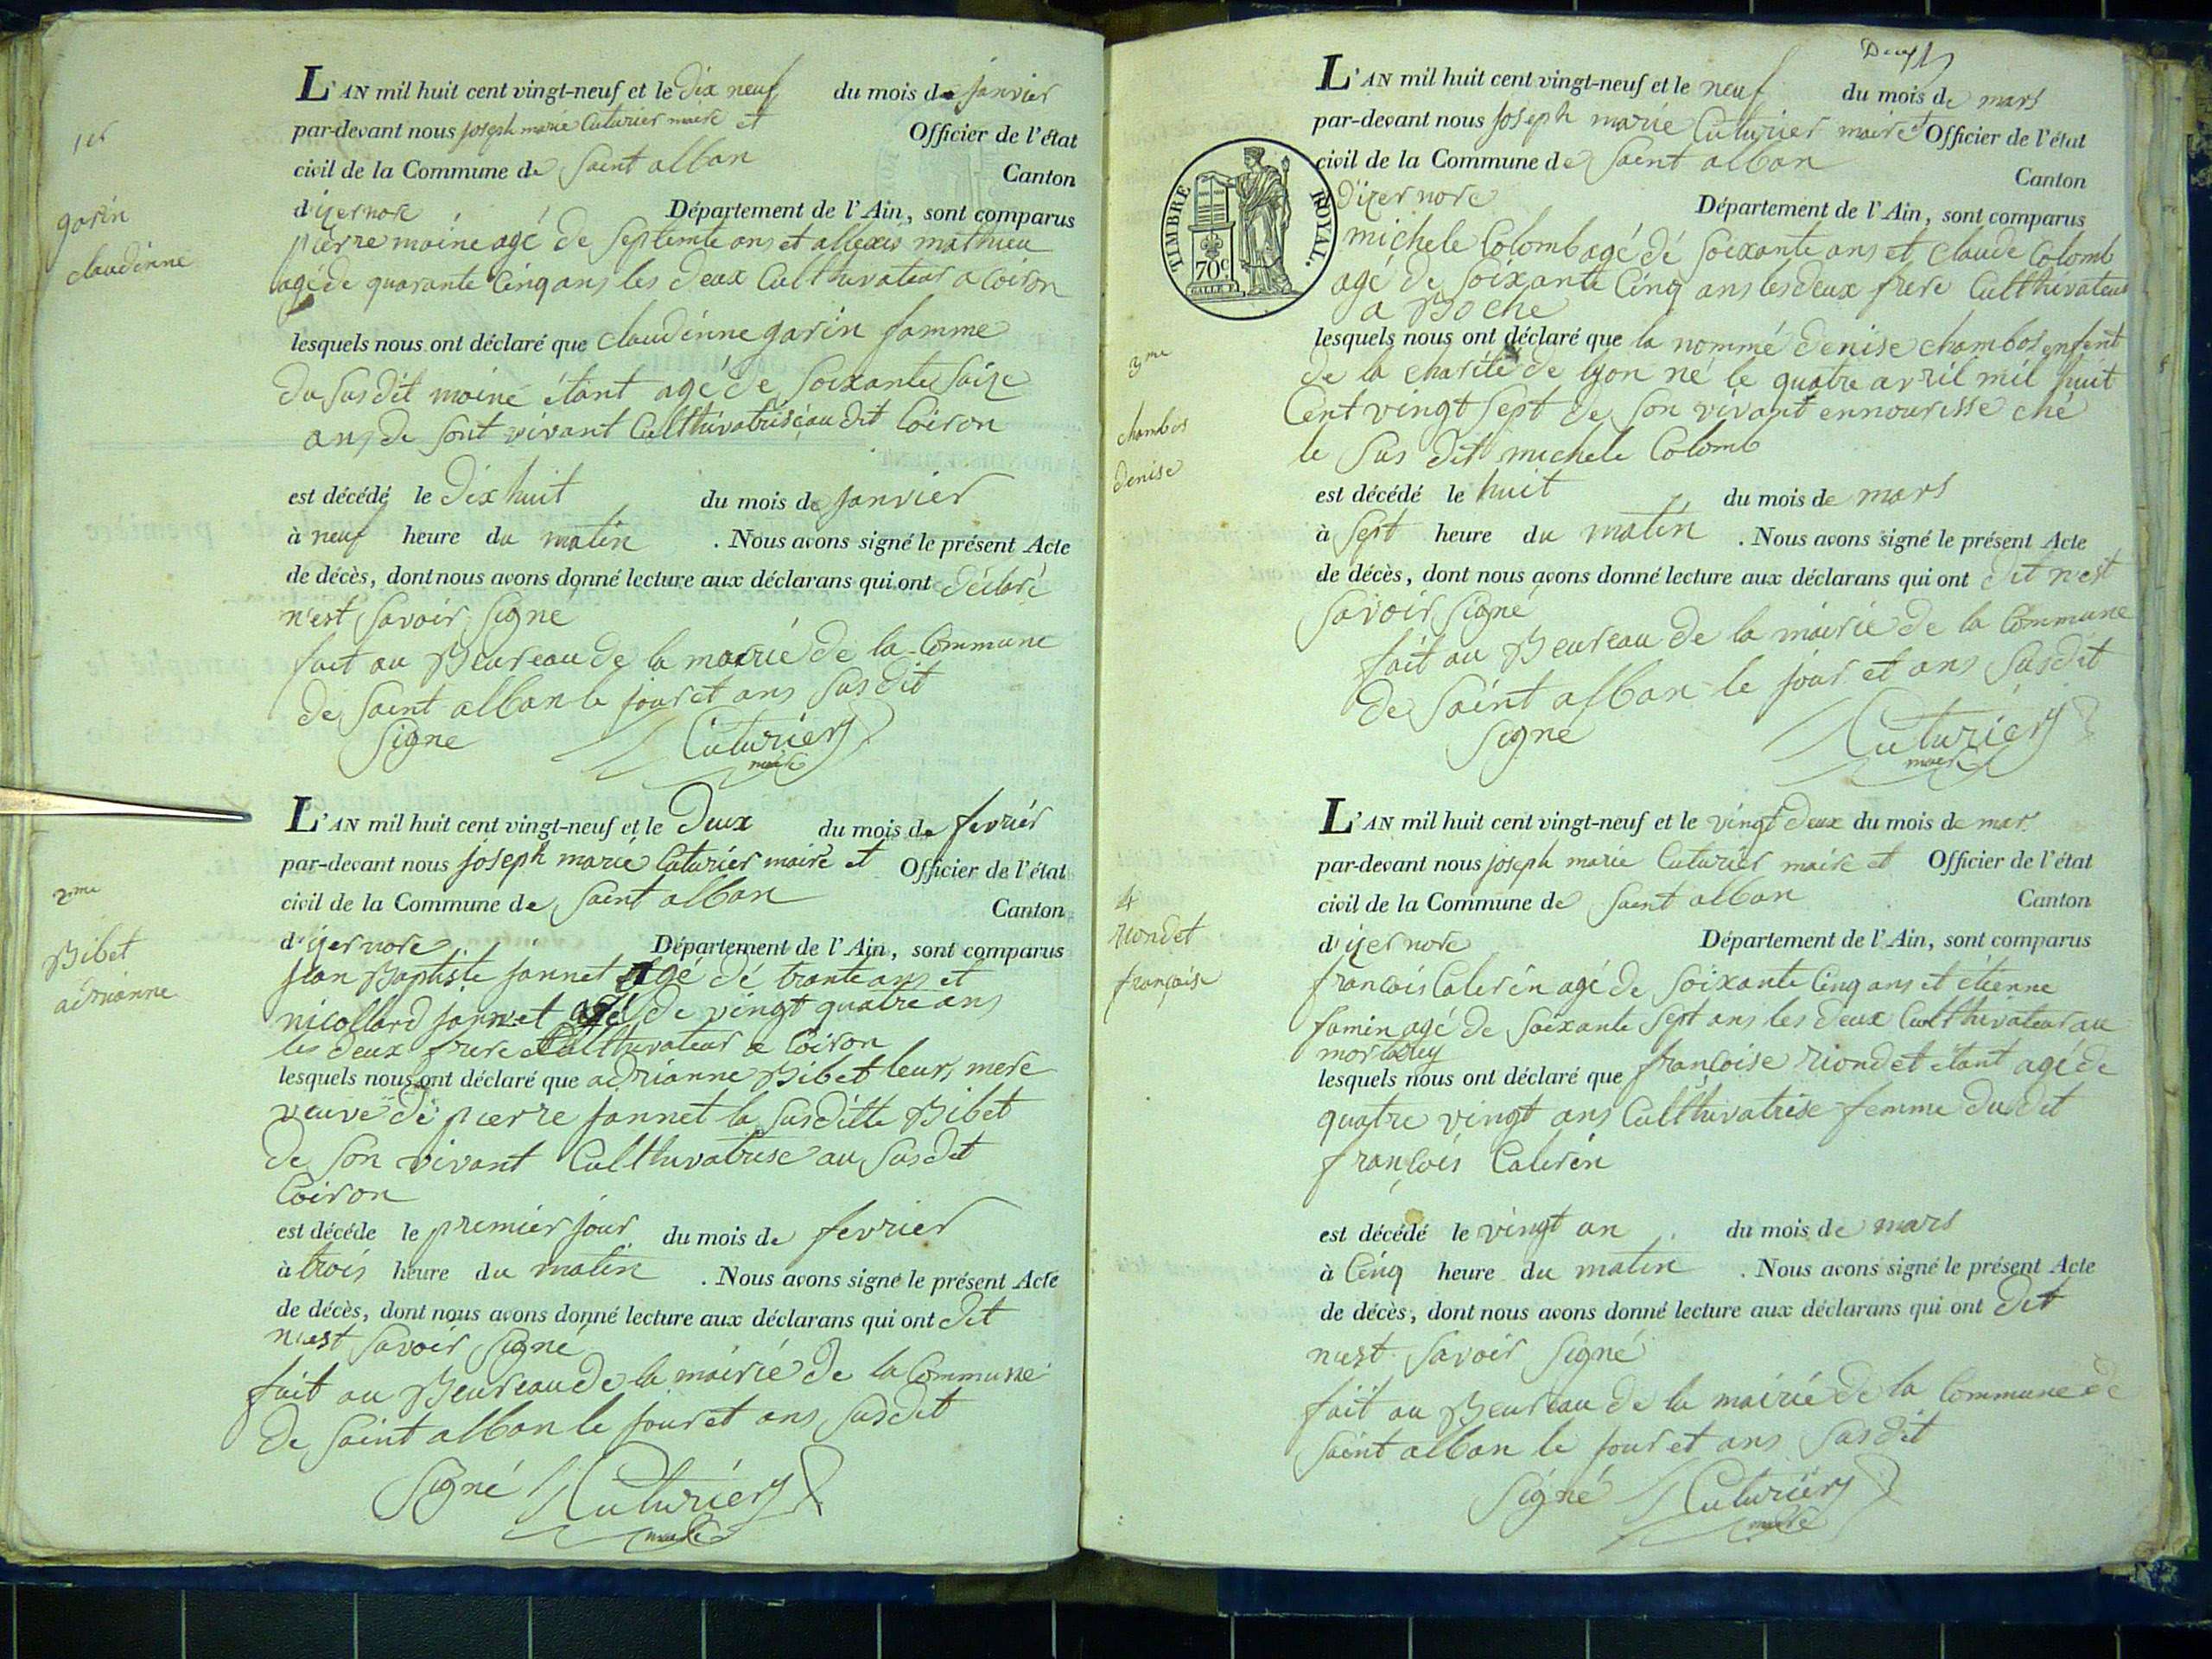 1er
garin
claudinne
L'AN mil huit cent vingt-neuf et le dix neuf du mois de janvier
par-devant nous joseph marie Cuturier maire et Officier de l'état
civil de la Commune de Saint alban Canton
d'izernore Département de l'Ain, sont comparus
pierre moine agé de Septente ans et allexis mathieu
agé de quarante Cinq ans les deux Culthivateur a Coiron
lesquels nous ont déclaré que claudinne garin famme
du Susdit moine étant agé de Soixante Saize
ans de Sont vivant Culthivatrise au dit Coiron
est décédé le dix huit du mois de janvier
à neuf heure du matin . Nous avons signé le présent Acte
de décès, dont nous avons donné lecture aux déclarans qui ont déclaré
n'est Savoir Signé
fait au Beureau de la mairie de la Commune
de Saint alban le jour et ans Susdit
Signé Cuturier
maire
2me
Bibet
adrianne
L'AN mil huit cent vingt-neuf et le Deux du mois de fevrier
par-devant nous joseph marie Cuturier maire et Officier de l'état
civil de la Commune de Saint alban Canton
d'izernore Département de l'Ain, sont comparus
jean Baptiste jannet agé de trante ans et
nicollard jannet agé de vingt quatre ans
les deux frere Culthivateur a Coiron
lesquels nous ont déclaré que adrianne Bibet leurs mere
veuve de pierre jannet la Susditte Bibet
de Son vivant Culthivatrise au Susdit
Coiron
est décédé le premier jour du mois de fevrier
à trois heure du matin . Nous avons signé le présent Acte
de décès, dont nous avons donné lecture aux déclarans qui ont dit
n'est Savoir Signé
fait au Beureau de la mairie de la Commune
de Saint alban le jour et ans Susdit
Signé Cuturier
maire
TIMBRE ROYAL.
70c
3me
chambos
denise
L'AN mil huit cent vingt-neuf et le neuf du mois de mars
par-devant nous joseph marie Cuturier maire et Officier de l'état
civil de la Commune de Saint alban Canton
d'izernore Département de l'Ain, sont comparus
michele Colomb agé de Soixante ans et claude Colomb
agé de Soixante Cinq ans les deux frere Culthivateur
a Boche
lesquels nous ont déclaré que la nommé denise chambos enfent
de la charité de lyon né le quatre avril mil huit
Cent vingt Sept de Son vivant ennourisse ché
le Sus dit michele Colomb
est décédé le huit du mois de mars
à Sept heure du matin . Nous avons signé le présent Acte
de décès, dont nous avons donné lecture aux déclarans qui ont dit n'est
Savoir Signé
fait au Beureau de la mairie de la Commune
de Saint alban le jour et ans Susdit
Signé Cuturier
maire
4
riondet
françoise
L'AN mil huit cent vingt-neuf et le vingt deux du mois de mar
par-devant nous joseph marie Cuturier maire et Officier de l'état
civil de la Commune de Saint alban Canton
d'izernore Département de l'Ain, sont comparus
francois Calerin agé de Soixante Cinq ans et étienne
famin agé de Soixante Sept ans les deux Culthivateur au
mortarey
lesquels nous ont déclaré que françoise riondet étant agé de
quatre vingt ans Culthivatrise femme dudit
françois Calerin
est décédé le vingt un du mois de mars
à Cinq heure du matin . Nous avons signé le présent Acte
de décès, dont nous avons donné lecture aux déclarans qui ont dit
n'est Savoir Signé
fait au Beureau de la mairie de la Commune de
Saint alban le jour et ans Susdit
Signé Cuturier
maire